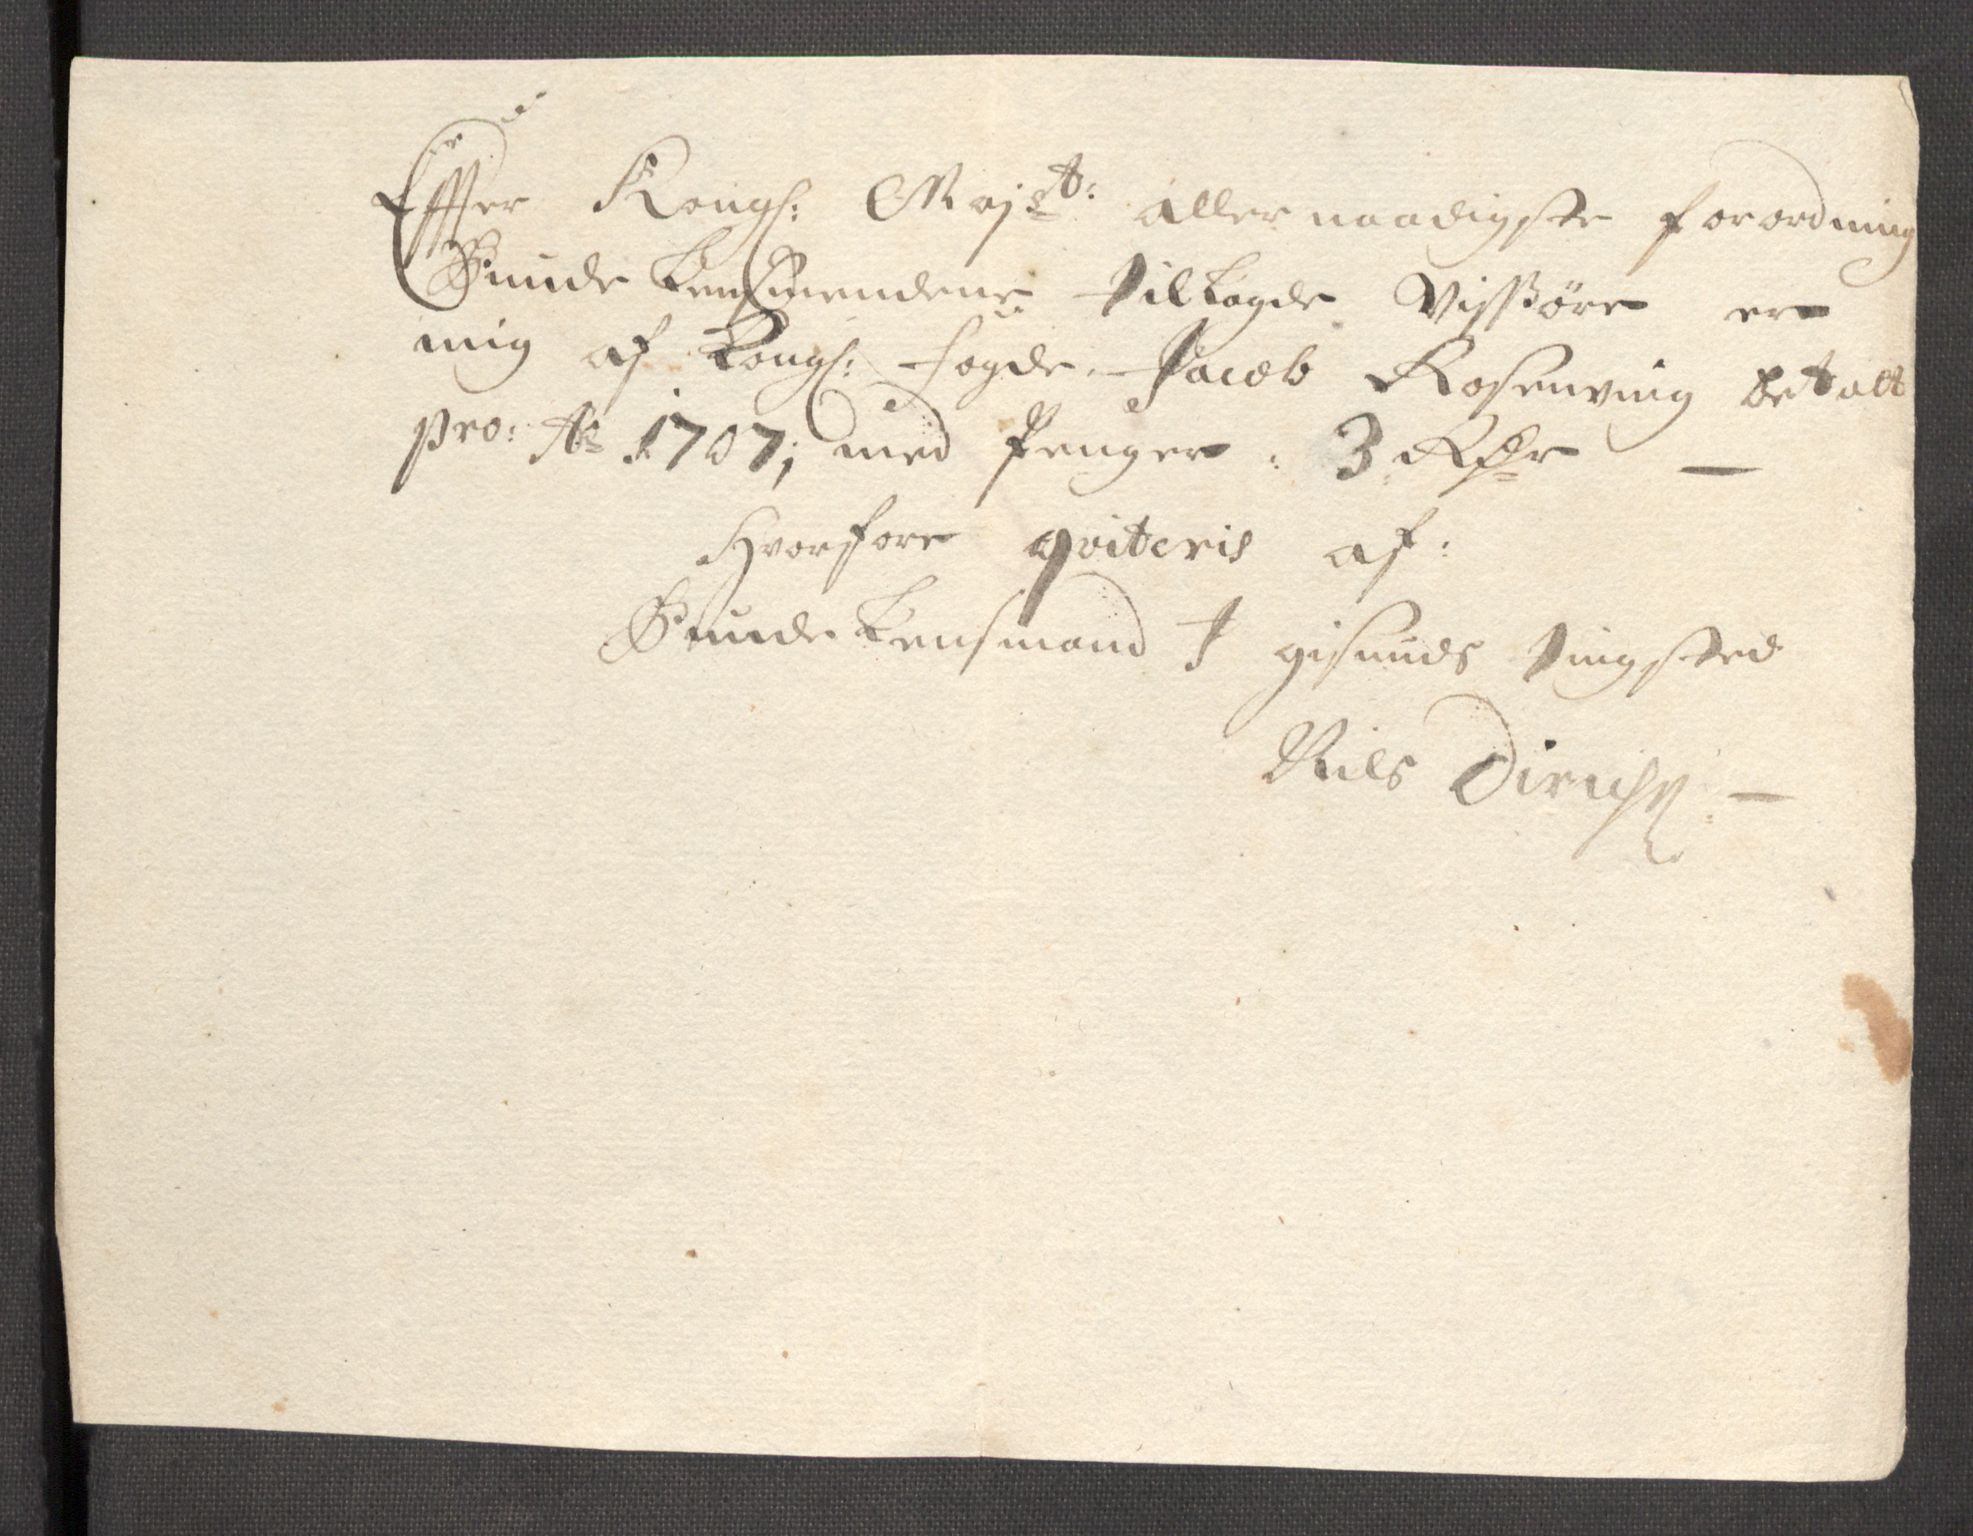 Effter Kongl: Mayst: allernaadigste forordning
Bunde Lensmendene tillagde Visøre er
mig af Kongl: fogde Jacob Rosenving betalt
pro: Ao 1707; med Penger: 3 Rdr —
Hvorfore qviteris af:
Bunde Lensmand I gisunds tingsted
Nils Dirichs: —